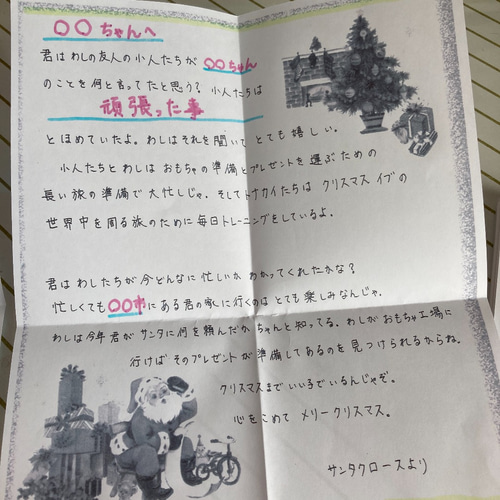 〇〇ちゃんへ
君はわしの友人の小人たちが 〇〇ちゃん
のことを何と言ってたと思う? 小人たちは
頑張った事
とほめていたよ。わしはそれを聞いてとても嬉しい。
小人たちとわしは おもちゃの準備とプレゼントを運ぶための
長い旅の準備で大忙しじゃ。そしてトナカイたちは クリスマスイブの
世界中を周る旅のために毎日トレーニングをしているよ。
君はわしたちが今どんなに忙しいか わかってくれたかな?
忙しくても〇〇市にある君の家に行くのは とても楽しみなんじゃ。
わしは今年君がサンタに何を頼んだかちゃんと知ってる。わしがおもちゃ工場に
行けば そのプレゼントが準備してあるのを見つけられるからね。
クリスマスまでいい子でいるんじゃぞ。
心をこめて メリークリスマス。
サンタクロースより